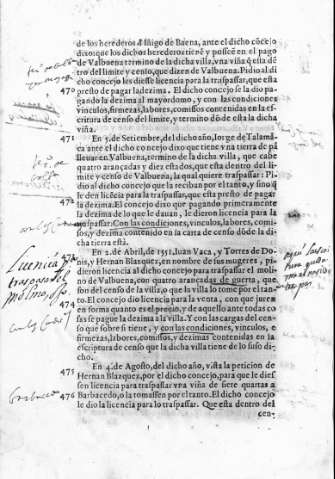 de los herederos d Iñigo de Baena, ante el dicho cõcejo
dixo: que los dichos herederos tiene y posseẽ en el pago
de Valbuena termino de la dicha villa, vna viña q̃ esta dẽ
tro del limite y censo, que dizen de Valbuena. Pidio al di
cho concejo les diesse licencia para la traspassar, que esta
470 presto de pagar la dezima. El dicho concejo se la dio pa-
gando la dezima al mayordomo, y con las condiciones
vinculos, firmezas, labores, comissos contenidas en la es-
critura de censo del limite, y termino dõde esta la dicha
viña.
471 En 5. de Setiembre, del dicho año, Iorge de Talamã
ca ante el dicho concejo dixo que tiene vna tierra de pã
lleuar en Valbuena, termino de la dicha villa, que cabe
quatro arançadas y diez estados, que esta dentro del li-
mite y censo de Valbuena, la qual quiere traspassar: Pi-
dio al dicho concejo que la reciban por el tanto, y sino q̃
le den licẽcia para la traspassar, que esta presto de pagar
la dezima. El concejo dixo que pagando primeramente
la dezima de lo que le dauan, le dieron licencia para la
traspassar. Con las condiciones, vinculos, labores, comi-
sos, y dezima contenido en la carta de censo dõde la di-
cha tierra està.
En 2. de Abril, de 1551. Iuan Vaca, y Torres de Do-
nis, y Hernan Blasquez, en nombre de sus mugeres, pi-
dieron licencia al dicho concejo para traspassar el moli-
no de Valbuena, con quatro arançadas de guerra, que
son del censo de la villa: o que la villa lo tome por el tan-
474 to. El concejo dio licencia para la venta, con que juren
en forma quanto es el precio, y de aquello ante todas co
sas se pague la dezima a la villa. Y con las cargas del cen-
so que sobre si tiene, y con las condiciones, vinculos, e
firmezas, labores, comissos, y dezimas contenidas en la
escriptura de censo que la dicha villa tiene de lo suso di-
cho.
475 En 4. de Agosto, del dicho año, vista la peticion de
Hernan Blazquez, por el dicho concejo, para que le dies
sen licencia para traspassar vna viña de siete quartas a
476 Barbacedo, o la tomassen por el tanto. El dicho concejo
le dio la licencia por lo traspassar. Que esta dentro del
cen-
Licencia